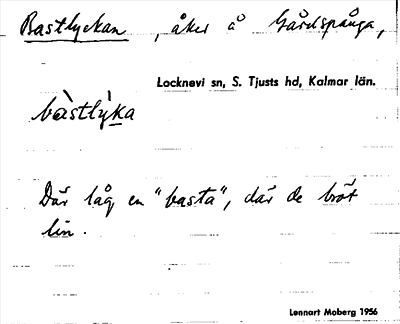 Bastlyckan, åker å Gårdspånga,
Locknevi sn, S. Tjusts hd, Kalmar län.
bàstlỳka
Där låg en "basta", där de bröt
lin.
Lennart Moberg 1956